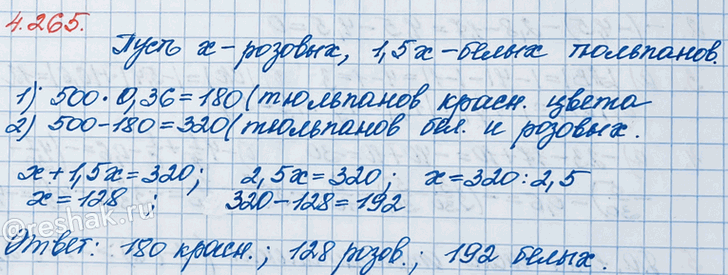 4.265.
Пусть x - розовых, 1,5x - белых тюльпанов.
1) 500 · 0,36 = 180 (тюльпанов красн. цвета
2) 500 - 180 = 320 (тюльпанов бел. и розовых.
x + 1,5x = 320; 2,5x = 320; x = 320 : 2,5
x = 128 ; 320 - 128 = 192
@reshak.ru
Ответ: 180 красн.; 128 розов.; 192 белых.